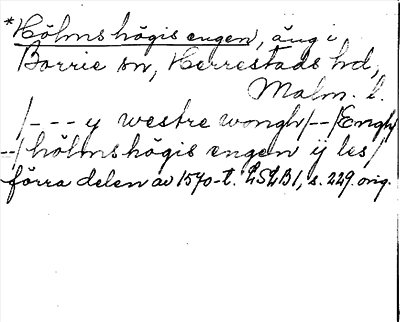 *Hölmshögis engen, äng i
Borrie sn, Herrestads hd,
Malm. l.
/--- y westre wongh/--/Engh/
--/ hölmshögis engen ij les/
förra delen av 1570-t. LSLB1, s. 229. orig.